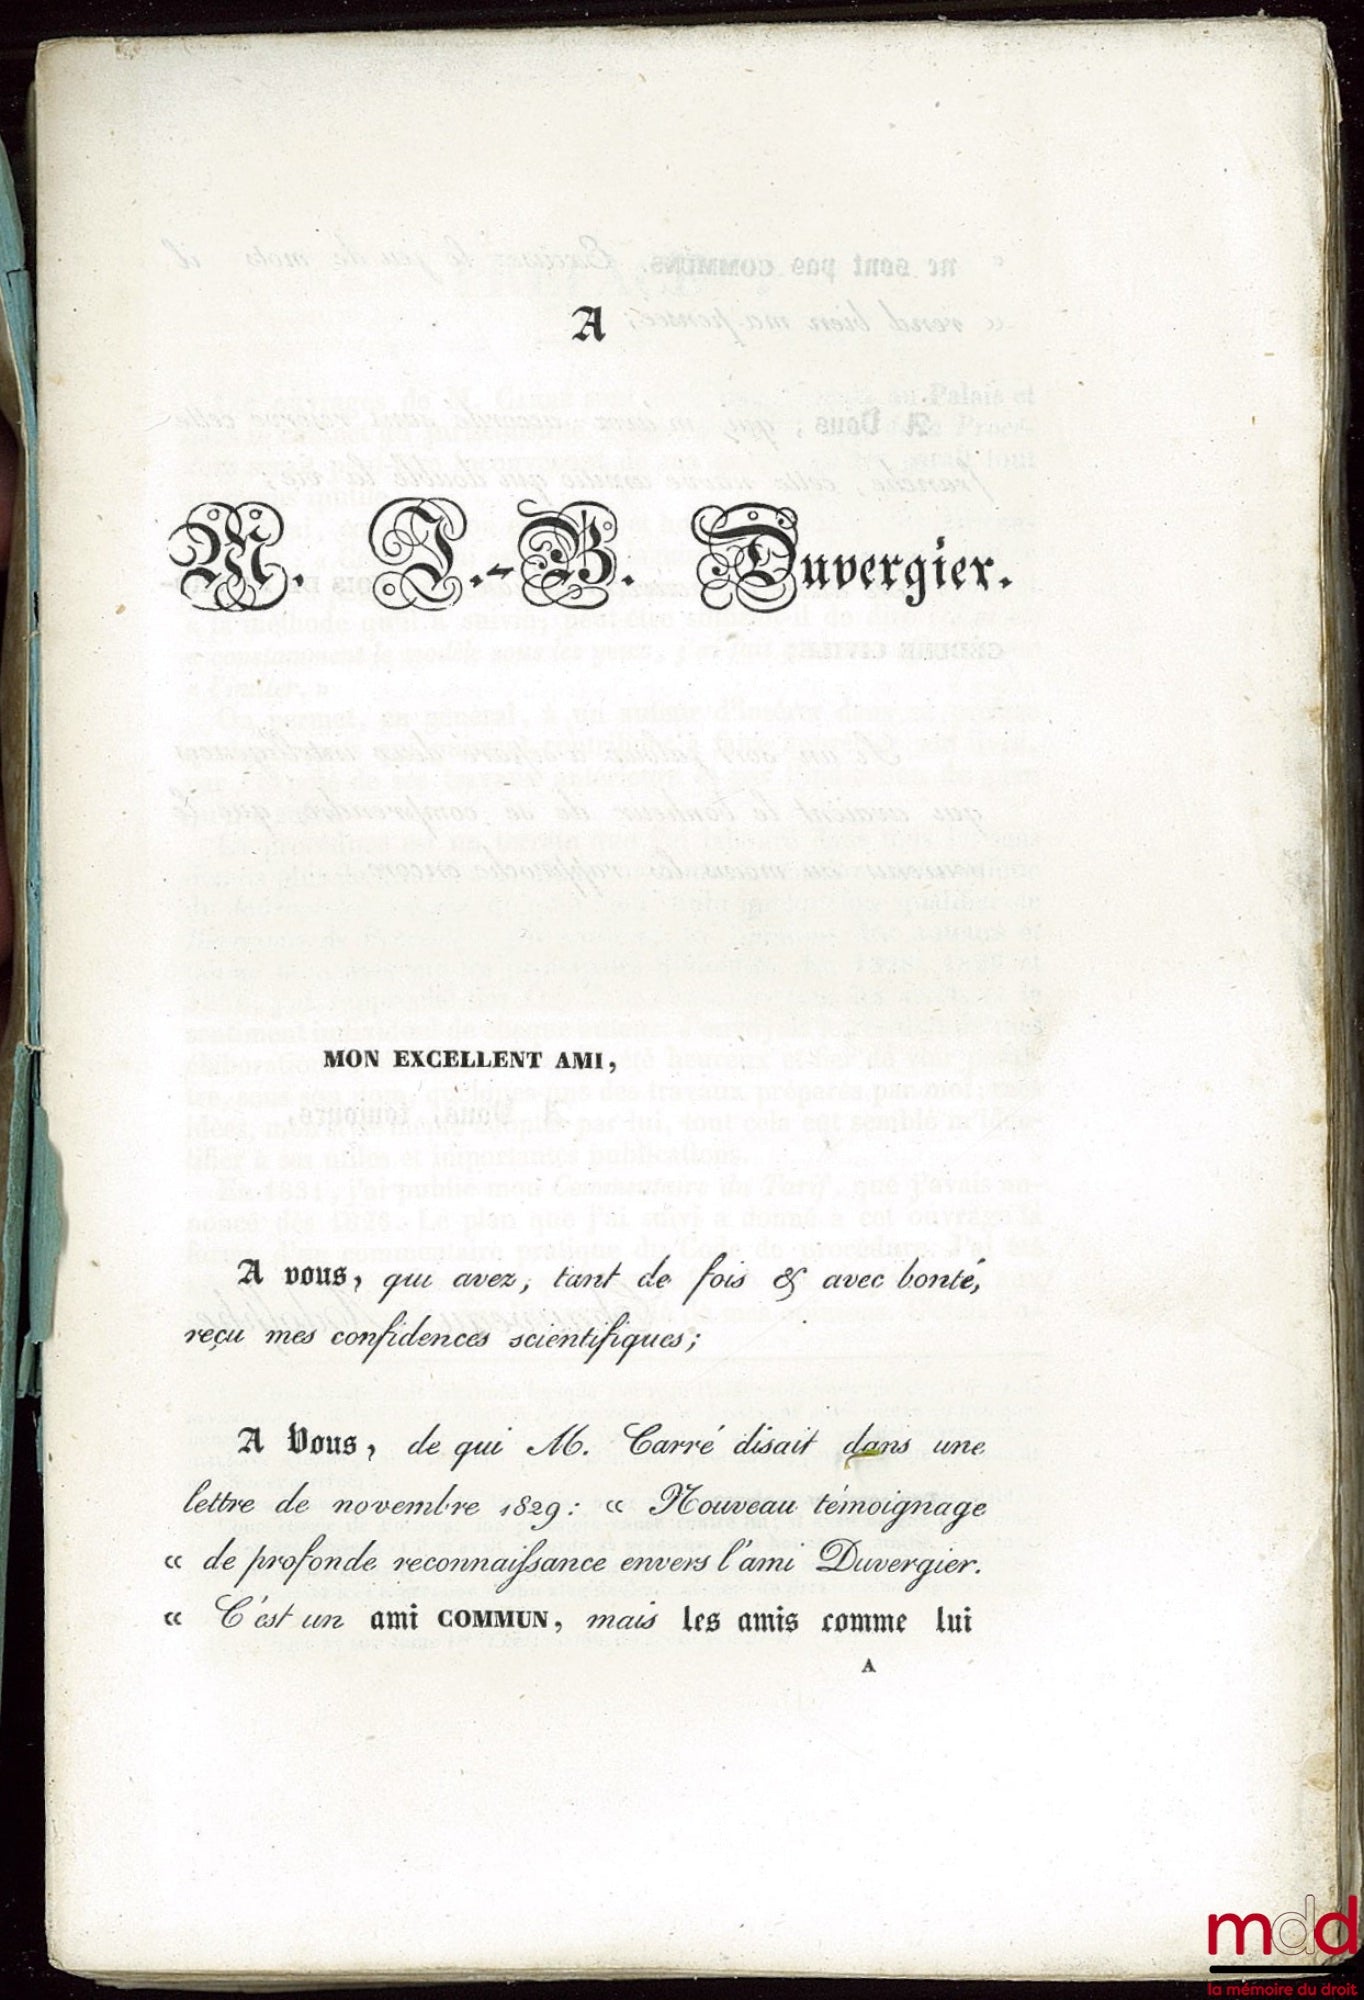 A
M. J.-B. Duvergier.
MON EXCELLENT AMI,
A vous, qui avez, tant de fois & avec bonté,
reçu mes confidences scientifiques;
A Vous, de qui M. Carré disait dans une
lettre de novembre 1829: « Nouveau témoignage
« de profonde reconnaissance envers l'ami Duvergier.
« C'est un ami COMMUN, mais les amis comme lui
A
mdd
la mémoire du droit